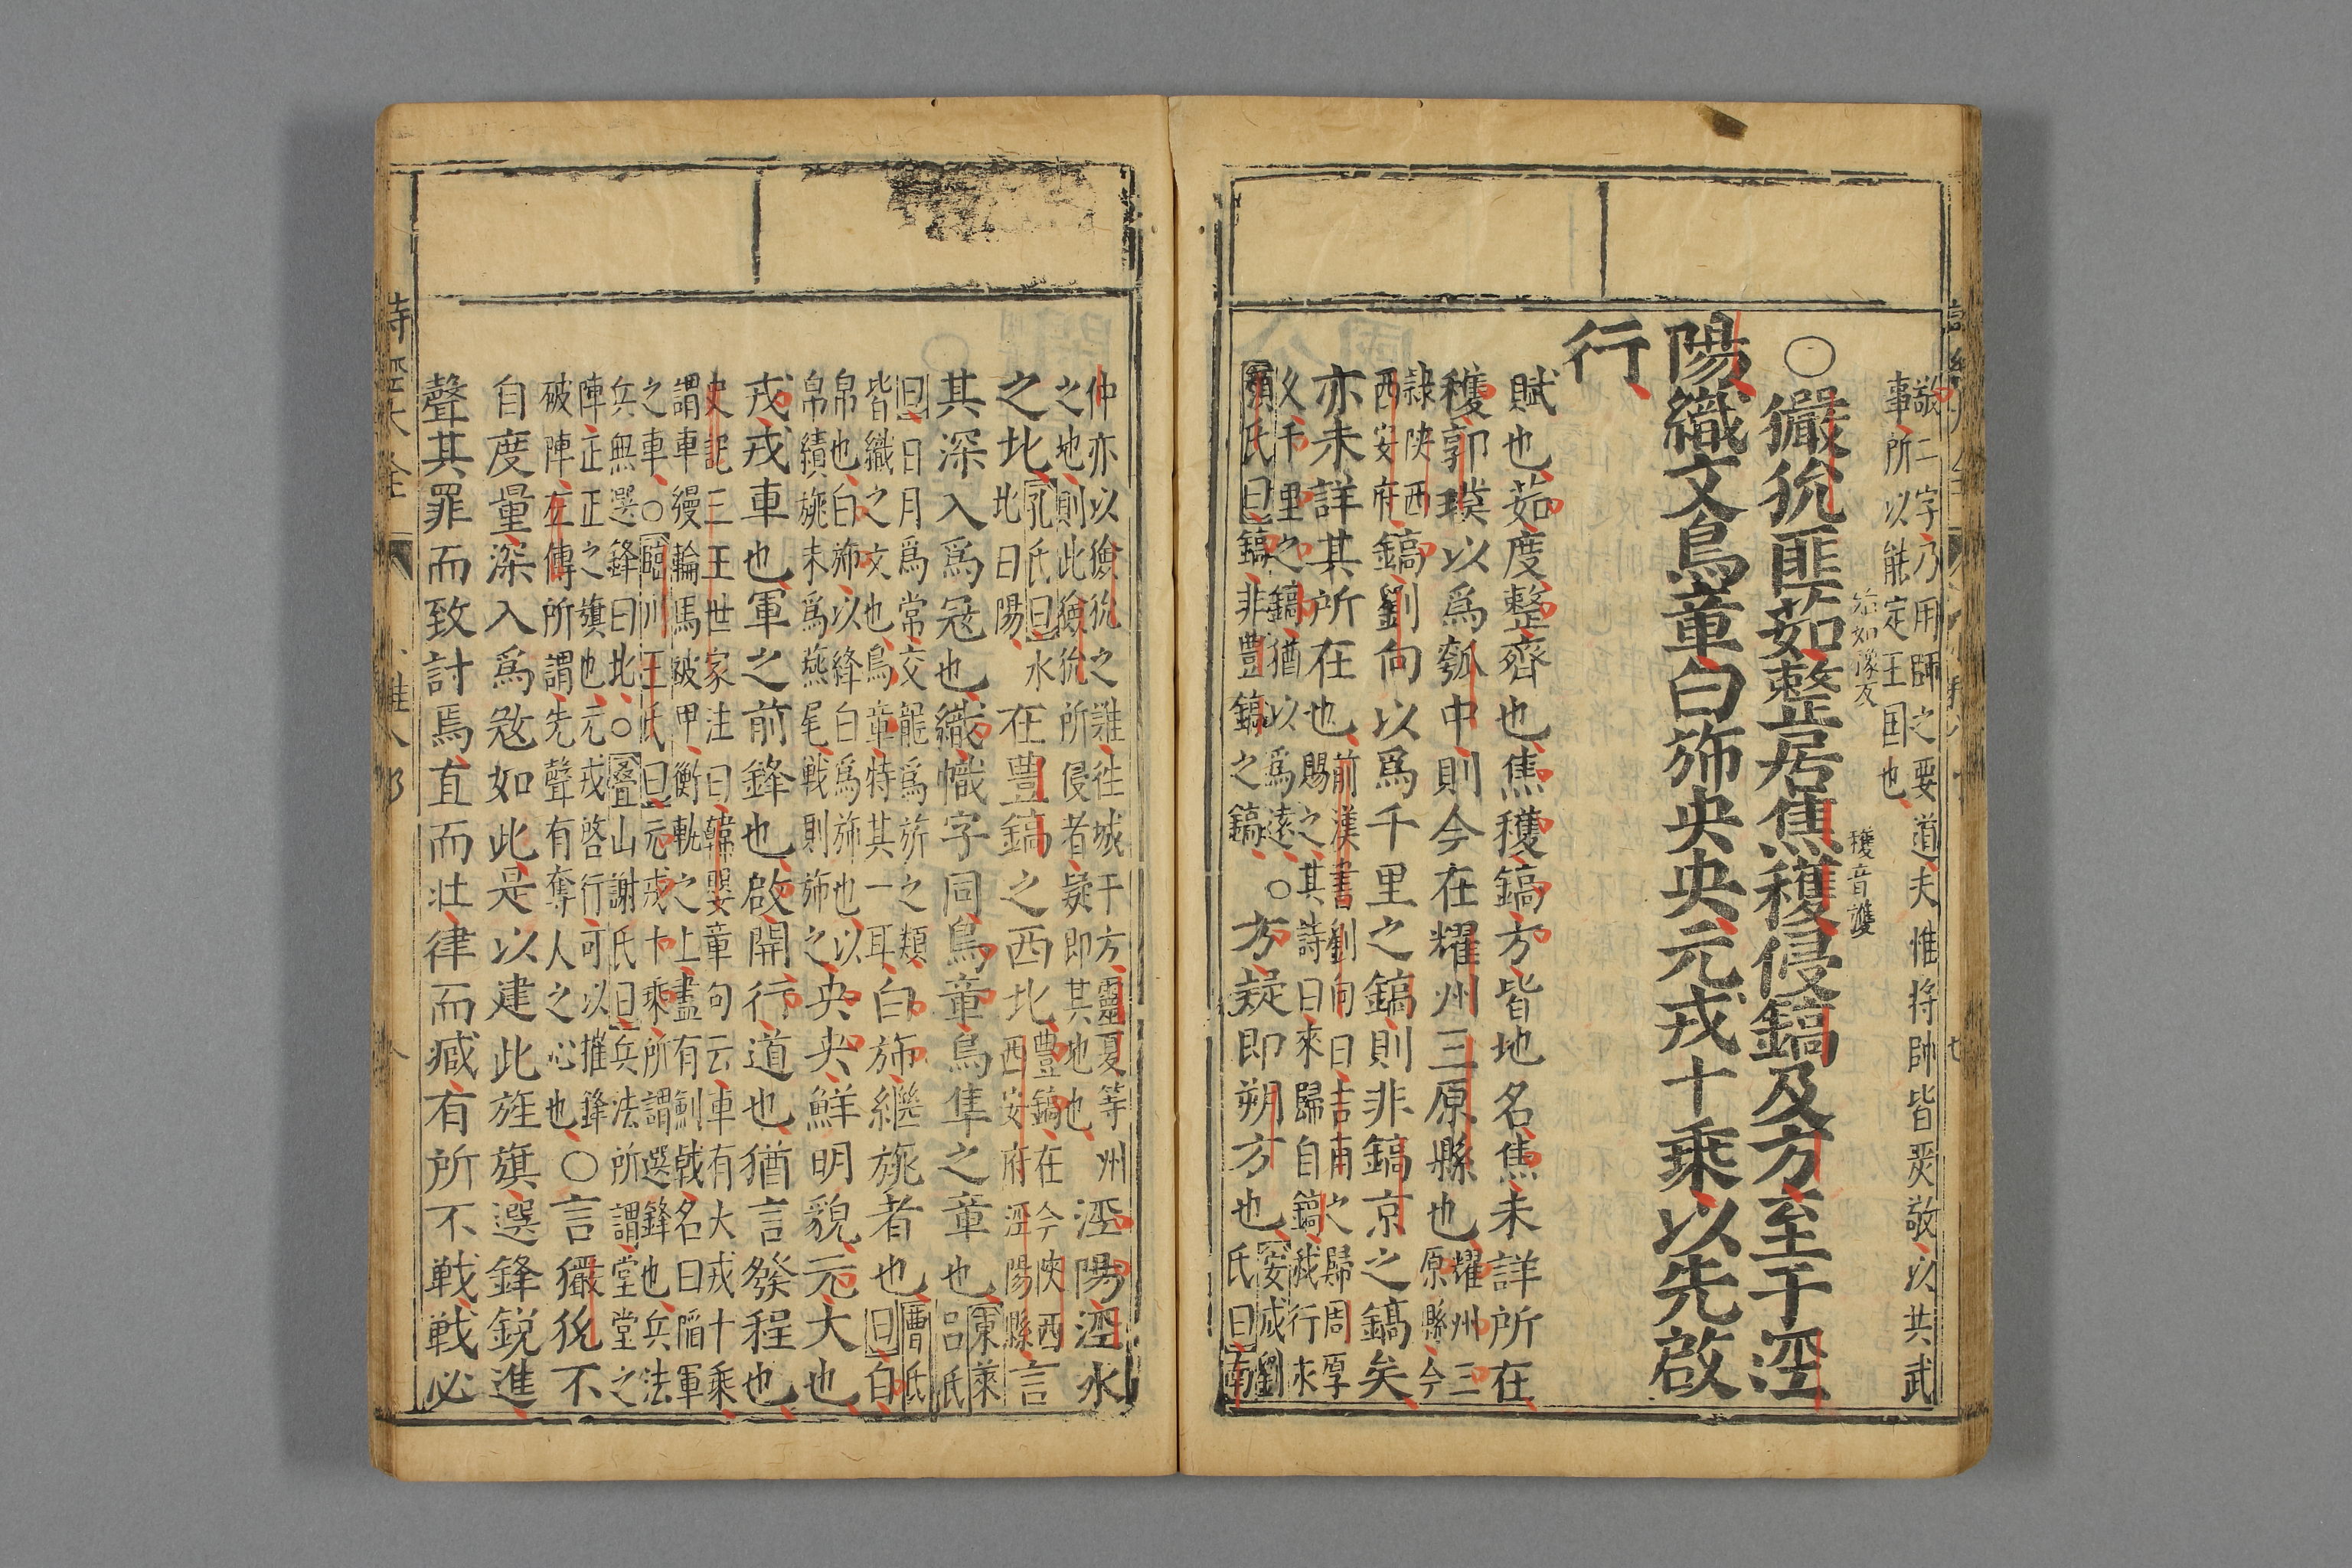 敬二字乃用師之要道夫惟將帥皆嚴敬以共武
事所以能定王国也
○玁狁匪茹整居焦穫侵鎬及方至于涇
茹如豫反
穫音護
陽織文鳥章白斾央央元戎十乘以先啟
行
賦也茹度整齊也焦穫鎬方皆地名焦未詳所在
穫郭璞以為瓠中則今在耀州三原縣也
耀州三
原縣今
隷陝西
西安府
鎬劉向以為千里之鎬則非鎬京之鎬矣
亦未詳其所在也
前漢書劉向曰吉甫之歸周厚
賜之其詩曰來歸自鎬我行永
久千里之鎬猶以為遠
○
安成劉
氏曰南
鎬非豐鎬之鎬
方疑即朔方也
仲亦以玁狁之難往城于方靈夏等州
之地則此玁狁所侵者疑即其地也
涇陽涇水
之北
孔氏曰水
北曰陽
在豊鎬之西北
豊鎬在今陝西
西安府涇陽縣
言
其深入為冦也織幟字同鳥章鳥隼之章也
東萊
呂氏
曰日月為常交龍為旂之類
皆織之文也鳥章特其一耳
白斾繼旐者也
曹氏
曰白
帛也白斾以絳白為斾也以
帛續旐末為燕尾戰則斾之
央央鮮明貌元大也
戎戎車也軍之前鋒也啟開行道也猶言發程也
史記三王世家注曰韓嬰章句云車有大戎十乘
謂車縵輪馬被甲衡軛之上盡有劍戟名曰陷軍
之車○臨川王氏曰元戎十乘所謂選鋒也兵法
兵無選鋒曰北○疊山謝氏曰兵法所謂堂堂之
陣正正之旗也元戎啓行可以摧鋒
破陣左傳所謂先聲有奪人之心也
○言玁狁不
自度量深入為寇如此是以建此旌旗選鋒銳進
聲其罪而致討焉直而壮律而臧有所不戦戦必